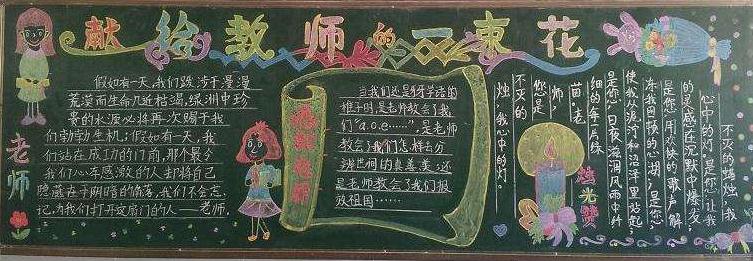 献给教师的一束花
老师
假如有一天，我们跋涉于漫漫
荒漠而生命几近枯竭，绿洲中珍
贵的水源必将再次赐于我
们勃勃生机；假如有一天，我
们站在成功的门前，那个最令
我们心存感激的人却将自己
隐蔽在予阴暗的角落，我们不会忘
记，为我们打开这扇门的人——老师。
感谢老师
当我们还是牙牙学语的
稚子时，是老师教会了我
们“a.o.e……”，是老师
教会了我们怎样去分
辨世间的真善美；还
是老师教会了我们报
效祖国……
烛光赞
不灭的蜡烛，我
心中的灯。是您，让我
的灵感在沉默中爆发；
是您，用欢快的歌声解
冻我困顿的心湖；是您，
使我从泥泞和沼泽里站起；
是您，日夜滋润风雨中纤
细的每片绿
苗。老
师，
您是
不灭的
烛，我心中的灯。